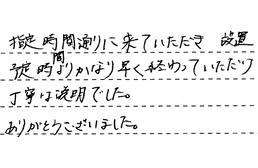 指定時間通りに来ていただき 設置
予定時間よりかなり早く終わっていただけ
丁寧な説明でした。
ありがとうございました。